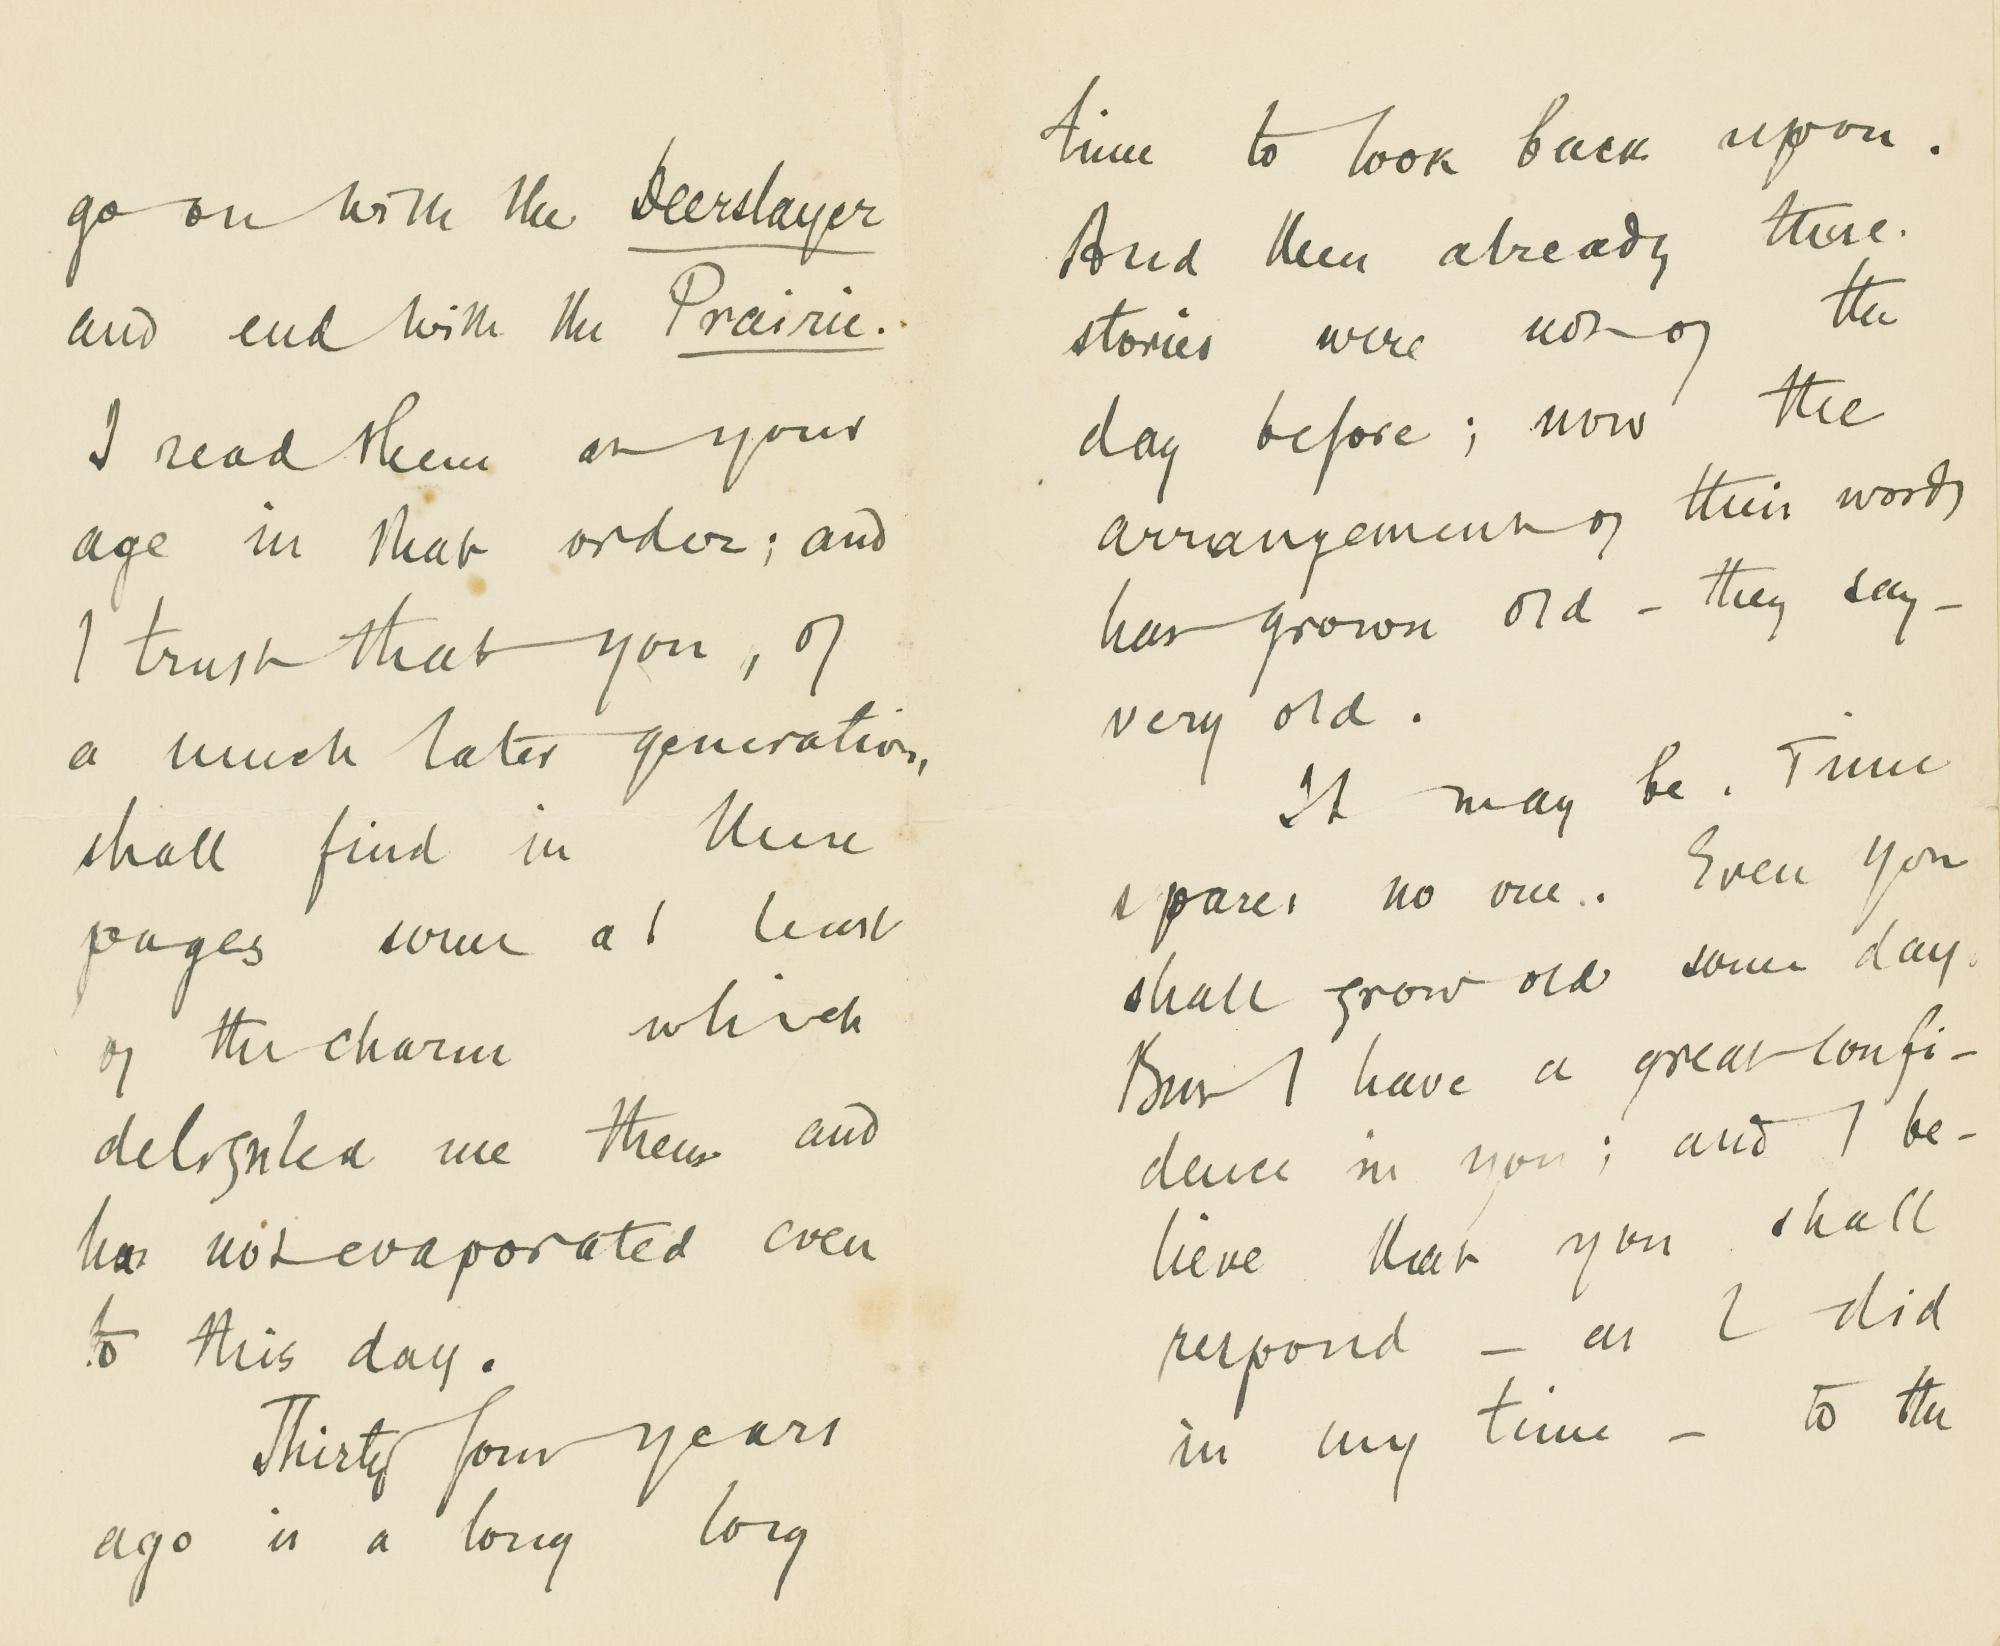 go on with the Deerslayer
and end with the Prairie.
I read them at your
age in that order; and
I trust that you, of
a much later generation,
shall find in these
pages some at least
of the charm which
delighted me then and
has not evaporated even
to this day.
Thirty four years
ago is a long long
time to look back upon.
And then already these
stories were not of the
day before; now the
arrangement of their words
has grown old – they say –
very old.
It may be. Time
spares no one. Even you
shall grow old some day.
But I have a great confi-
dence in you; and I be-
lieve that you shall
respond – as I did
in my time – to the